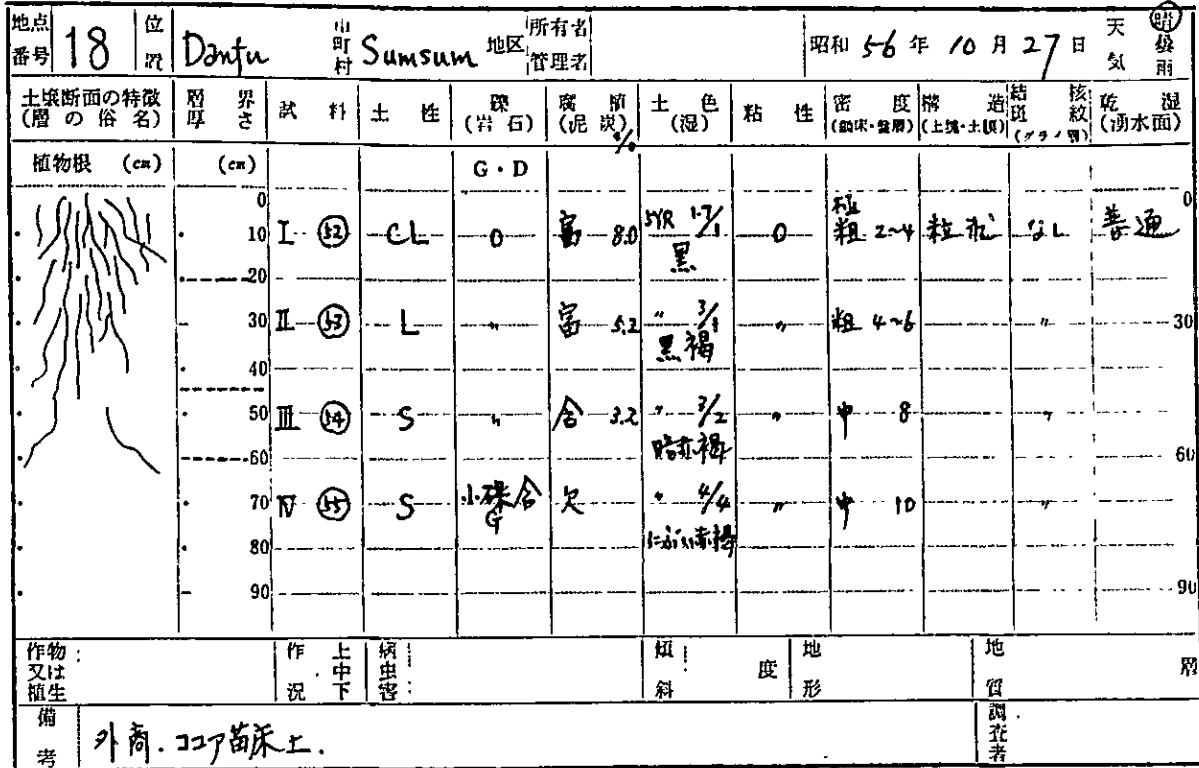 地点番号 18 位置 Dantu 市町村 Sumsum 地区 所有者 管理者 昭和 56 年 10 月 27 日 天気 晴 曇 雨
土壌断面の特徴 (層の俗名) 層界 厚さ 試料 土性 礫 (岩石) 腐植 (泥炭) % 土色 (湿) 粘性 密度 (鋤床・盤層) 構造 (土塊・土膜) 結核 斑紋 (グライ層) 乾湿 (湧水面)
植物根 (cm) (cm) G・D
0 0
10 I 52 CL 0 富 8.0 5YR 1.7/1 黒 0 極粗 2~4 粒状 なし 普通
20
30 II 53 L 〃 富 5.2 〃 3/1 黒褐 〃 粗 4~6 〃 30
40
50 III 54 S 〃 含 3.2 〃 3/2 暗赤褐 〃 中 8 〃
60 60
70 IV 55 S 小礫含 G 欠 〃 4/4 にぶい赤褐 〃 中 10 〃
80
90 90
作物又は植生 : 作況 上中下 病虫害 : 傾斜 : 度 地形 地質 層
備考 外商. ココア苗床土. 調査者